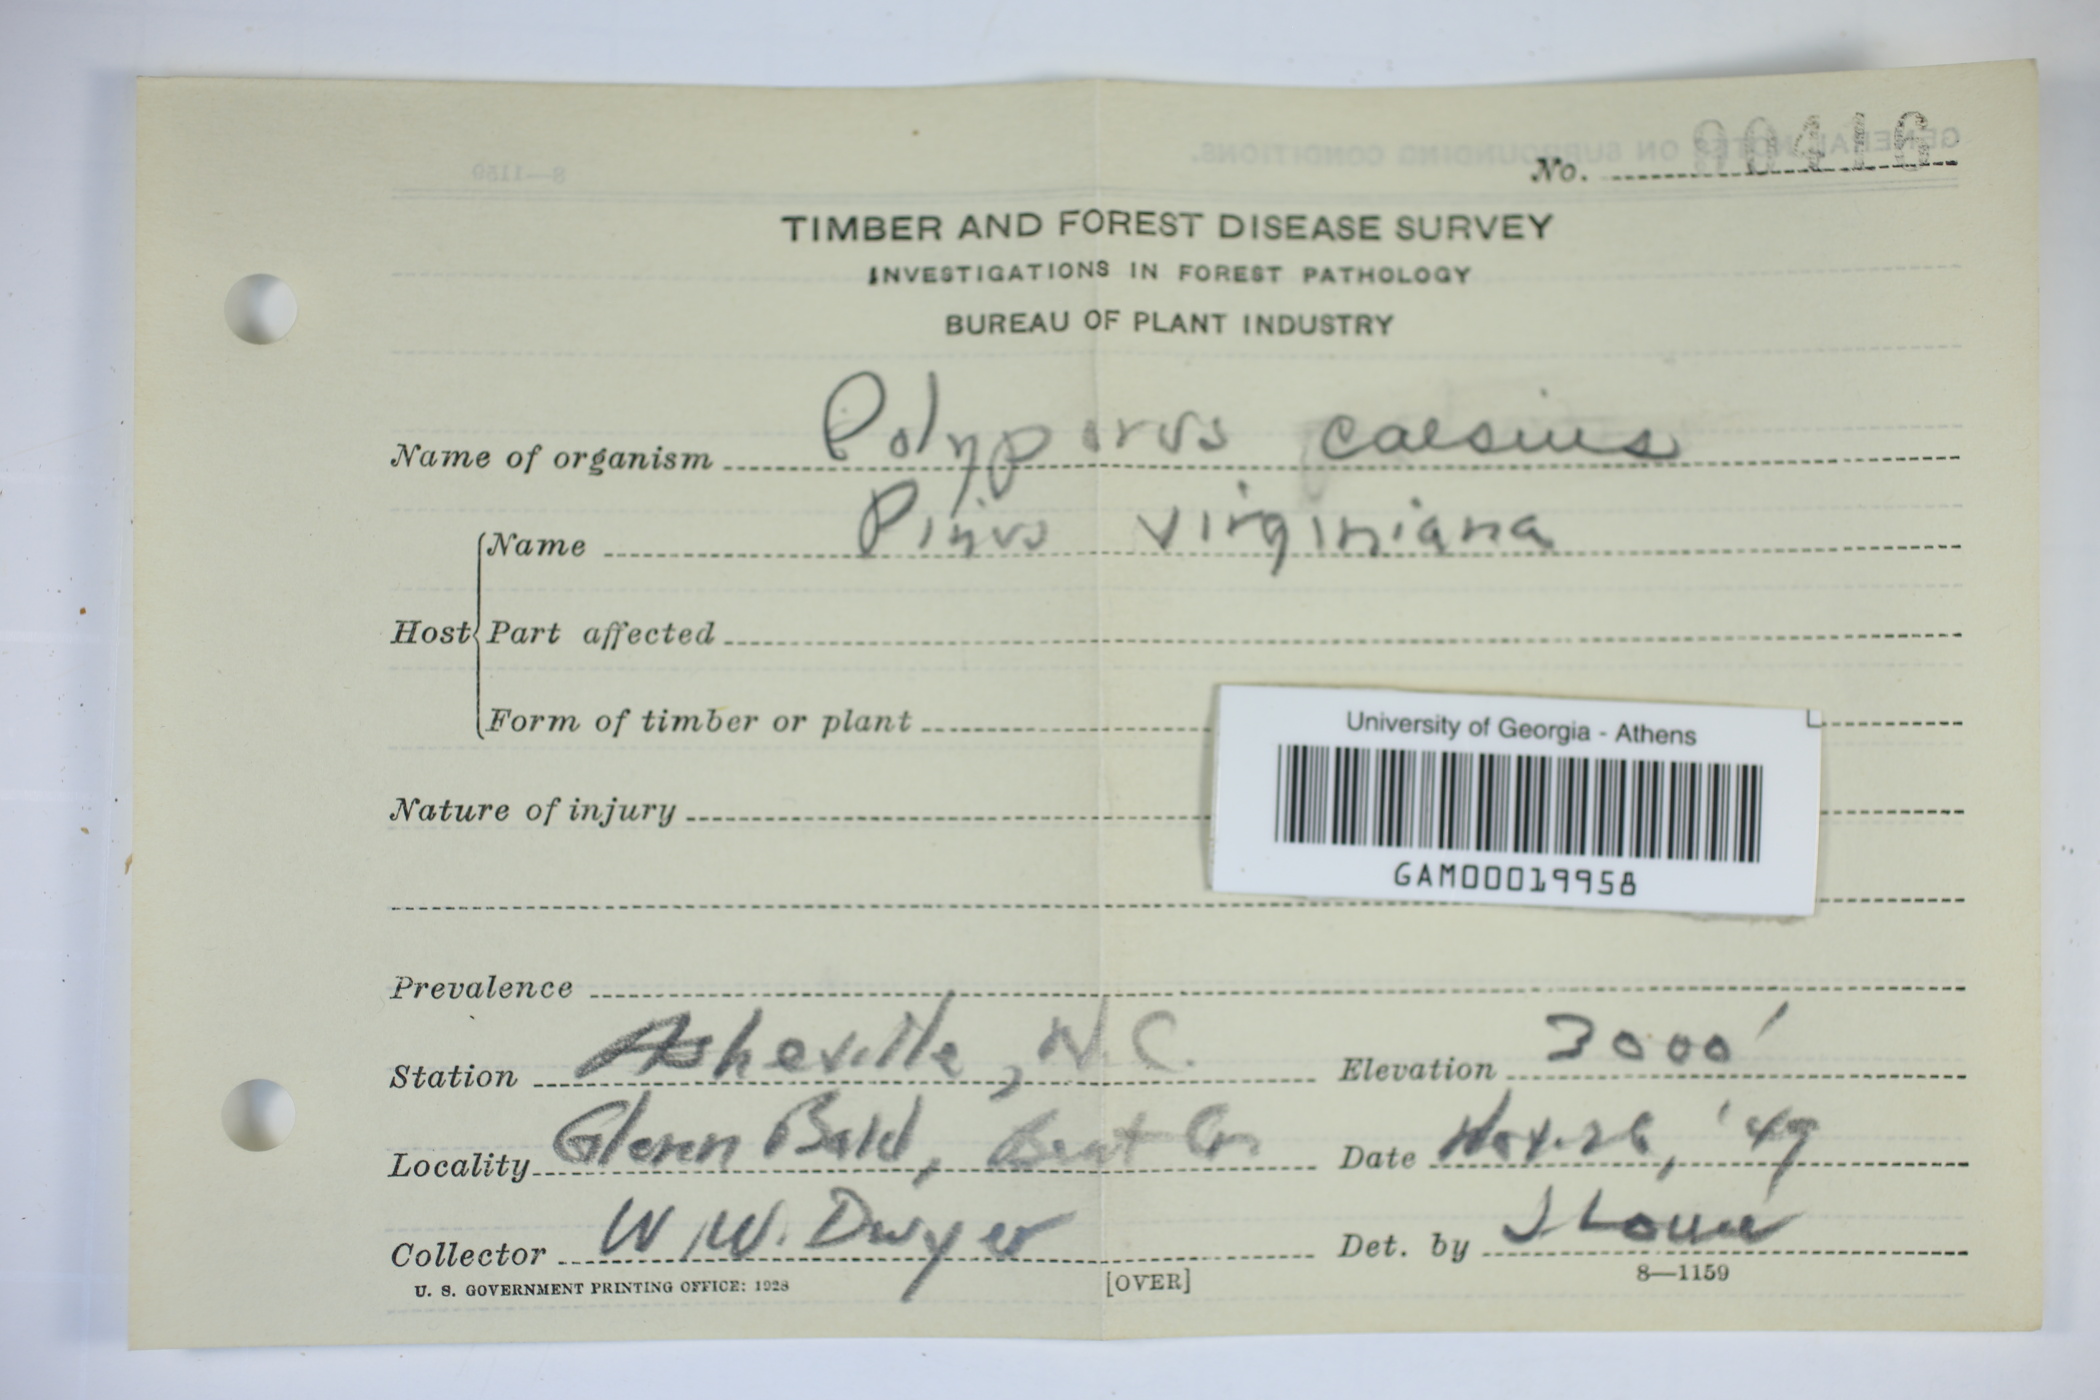 No. 90416
TIMBER AND FOREST DISEASE SURVEY
INVESTIGATIONS IN FOREST PATHOLOGY
BUREAU OF PLANT INDUSTRY
Name of organism Polyporus caesius
Host Name Pinus virginiana
Part affected
Form of timber or plant
University of Georgia - Athens
GAM00019958
Nature of injury
Prevalence
Station Asheville, N.C. Elevation 3000'
Locality Glenn Bald, Date Nov. 26, '49
Collector W.W. Dwyer Det. by J Lowe
U. S. GOVERNMENT PRINTING OFFICE: 1928 [OVER] 8—1159